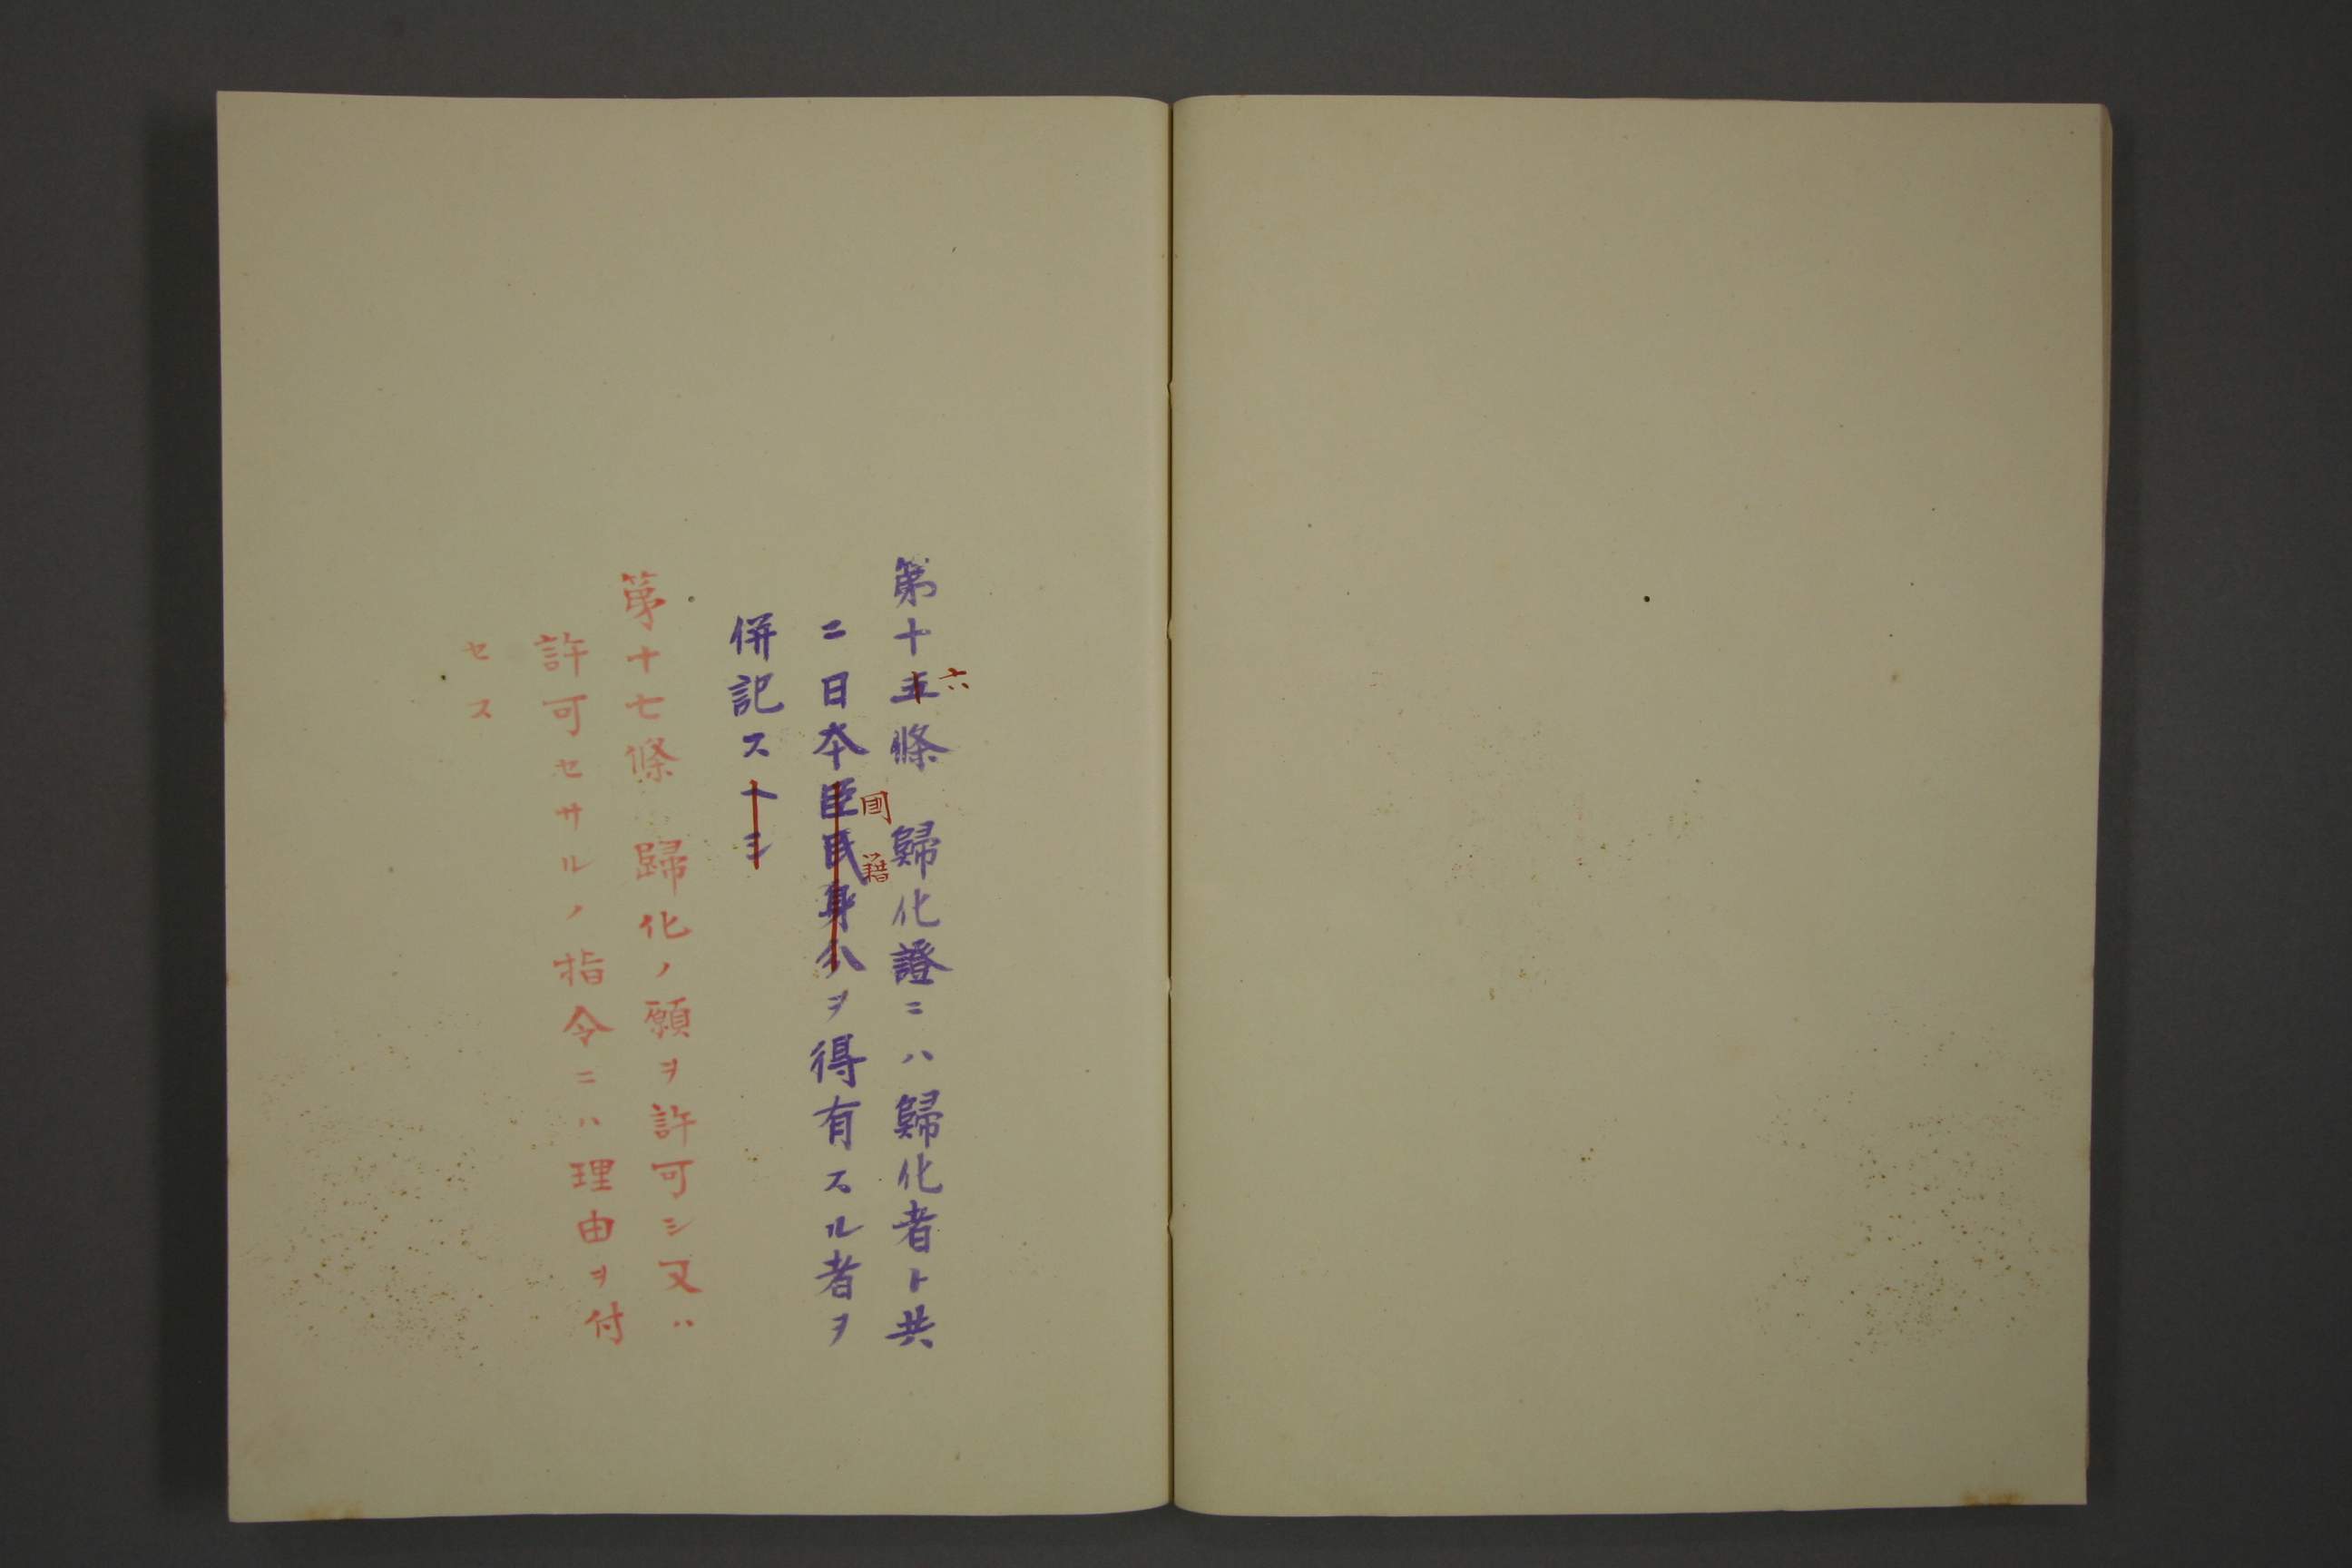 第十五條　歸化證ニハ歸化者ト共
六
ニ日本臣民身分ヲ得有スル者ヲ
國籍
併記スヘシ
第十七條　歸化ノ願ヲ許可シ又ハ
許可セサルノ指令ニハ理由ヲ付
セス